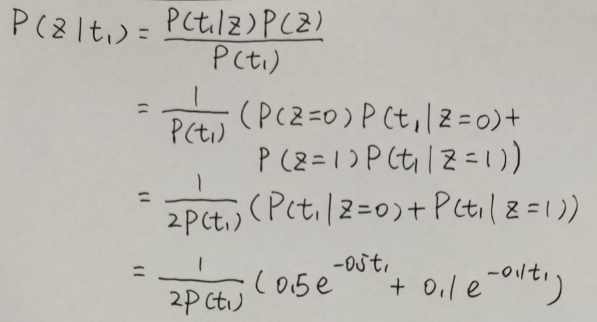 P(z|t₁) = P(t₁|z)P(z) / P(t₁)
= 1 / P(t₁) (P(z=0)P(t₁|z=0)+
P(z=1)P(t₁|z=1))
= 1 / 2P(t₁) (P(t₁|z=0)+P(t₁|z=1))
= 1 / 2P(t₁) (0.5e^{-0.5t₁} + 0.1e^{-0.1t₁})